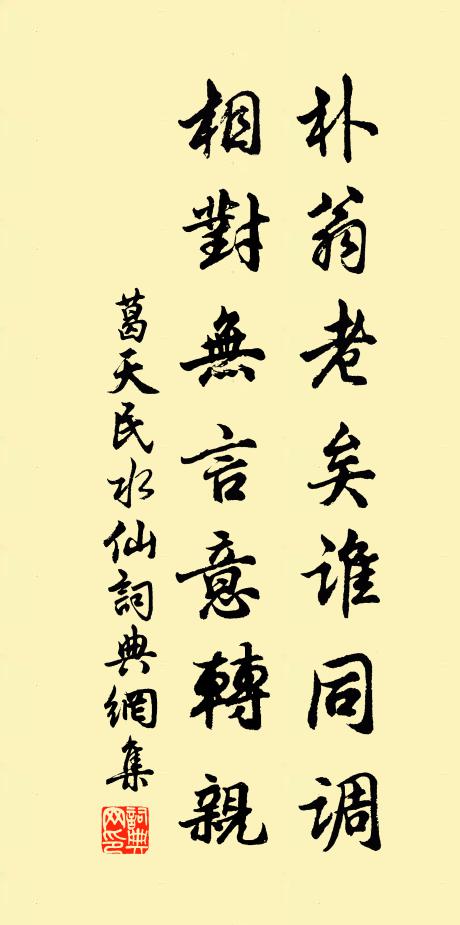 朴翁老矣谁同调
相對無言意轉親
葛天民水仙詞典網集
詞典网印